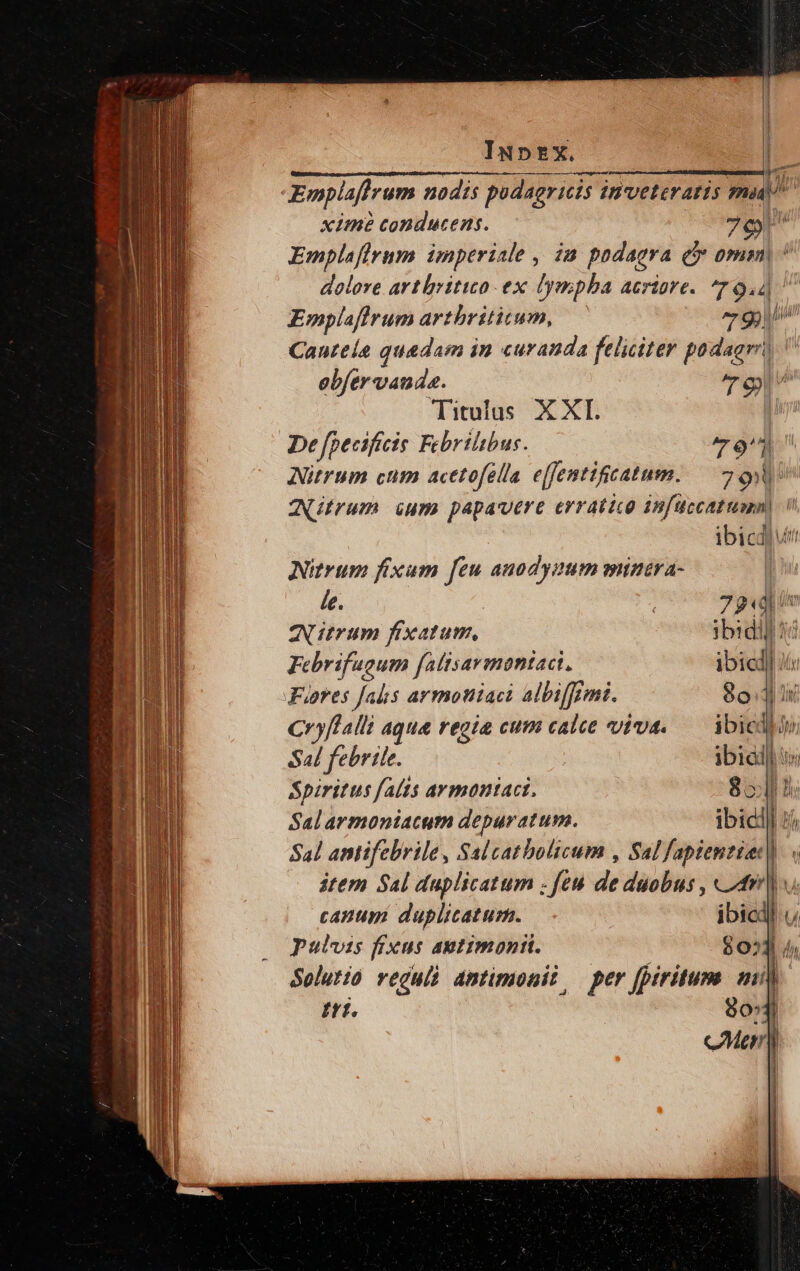 INDEX.
Emplaſtrum nodis podagricis inveteratis
ximè conducens.
Emplaſtrum imperiale, in podagra & omni
dolore arthritico ex lympha acriore.
Emplaſtrum arthriticum,
Cautelæ quædam in curanda feliciter
obſervandæ.
Titulus XXI.
De ſpecificis Febrilibus.
Nitrum cum acetoſella eſſentificatum.
Nitrum cum papavere erratico
Nitrum fixum ſeu anodynum minera-
le.
Nitrum fixatum,
Febrifugum ſalisarmoniaci.
Flores ſalis armoniaci albiſſimi.
Cryſtalli aquæ regiæ cum calce viva.
Sal febrile.
Spiritus ſalis armoniaci.
Sal armoniacum depuratum.
Sal antifebrile, Salcatholicum, Sal ſapientiæ
item Sal duplicatum ſeu de duobus,
canum duplicatum.
Pulvis fixus antimonii.
Solutio reguli antimonii per ſpiritum
tri.